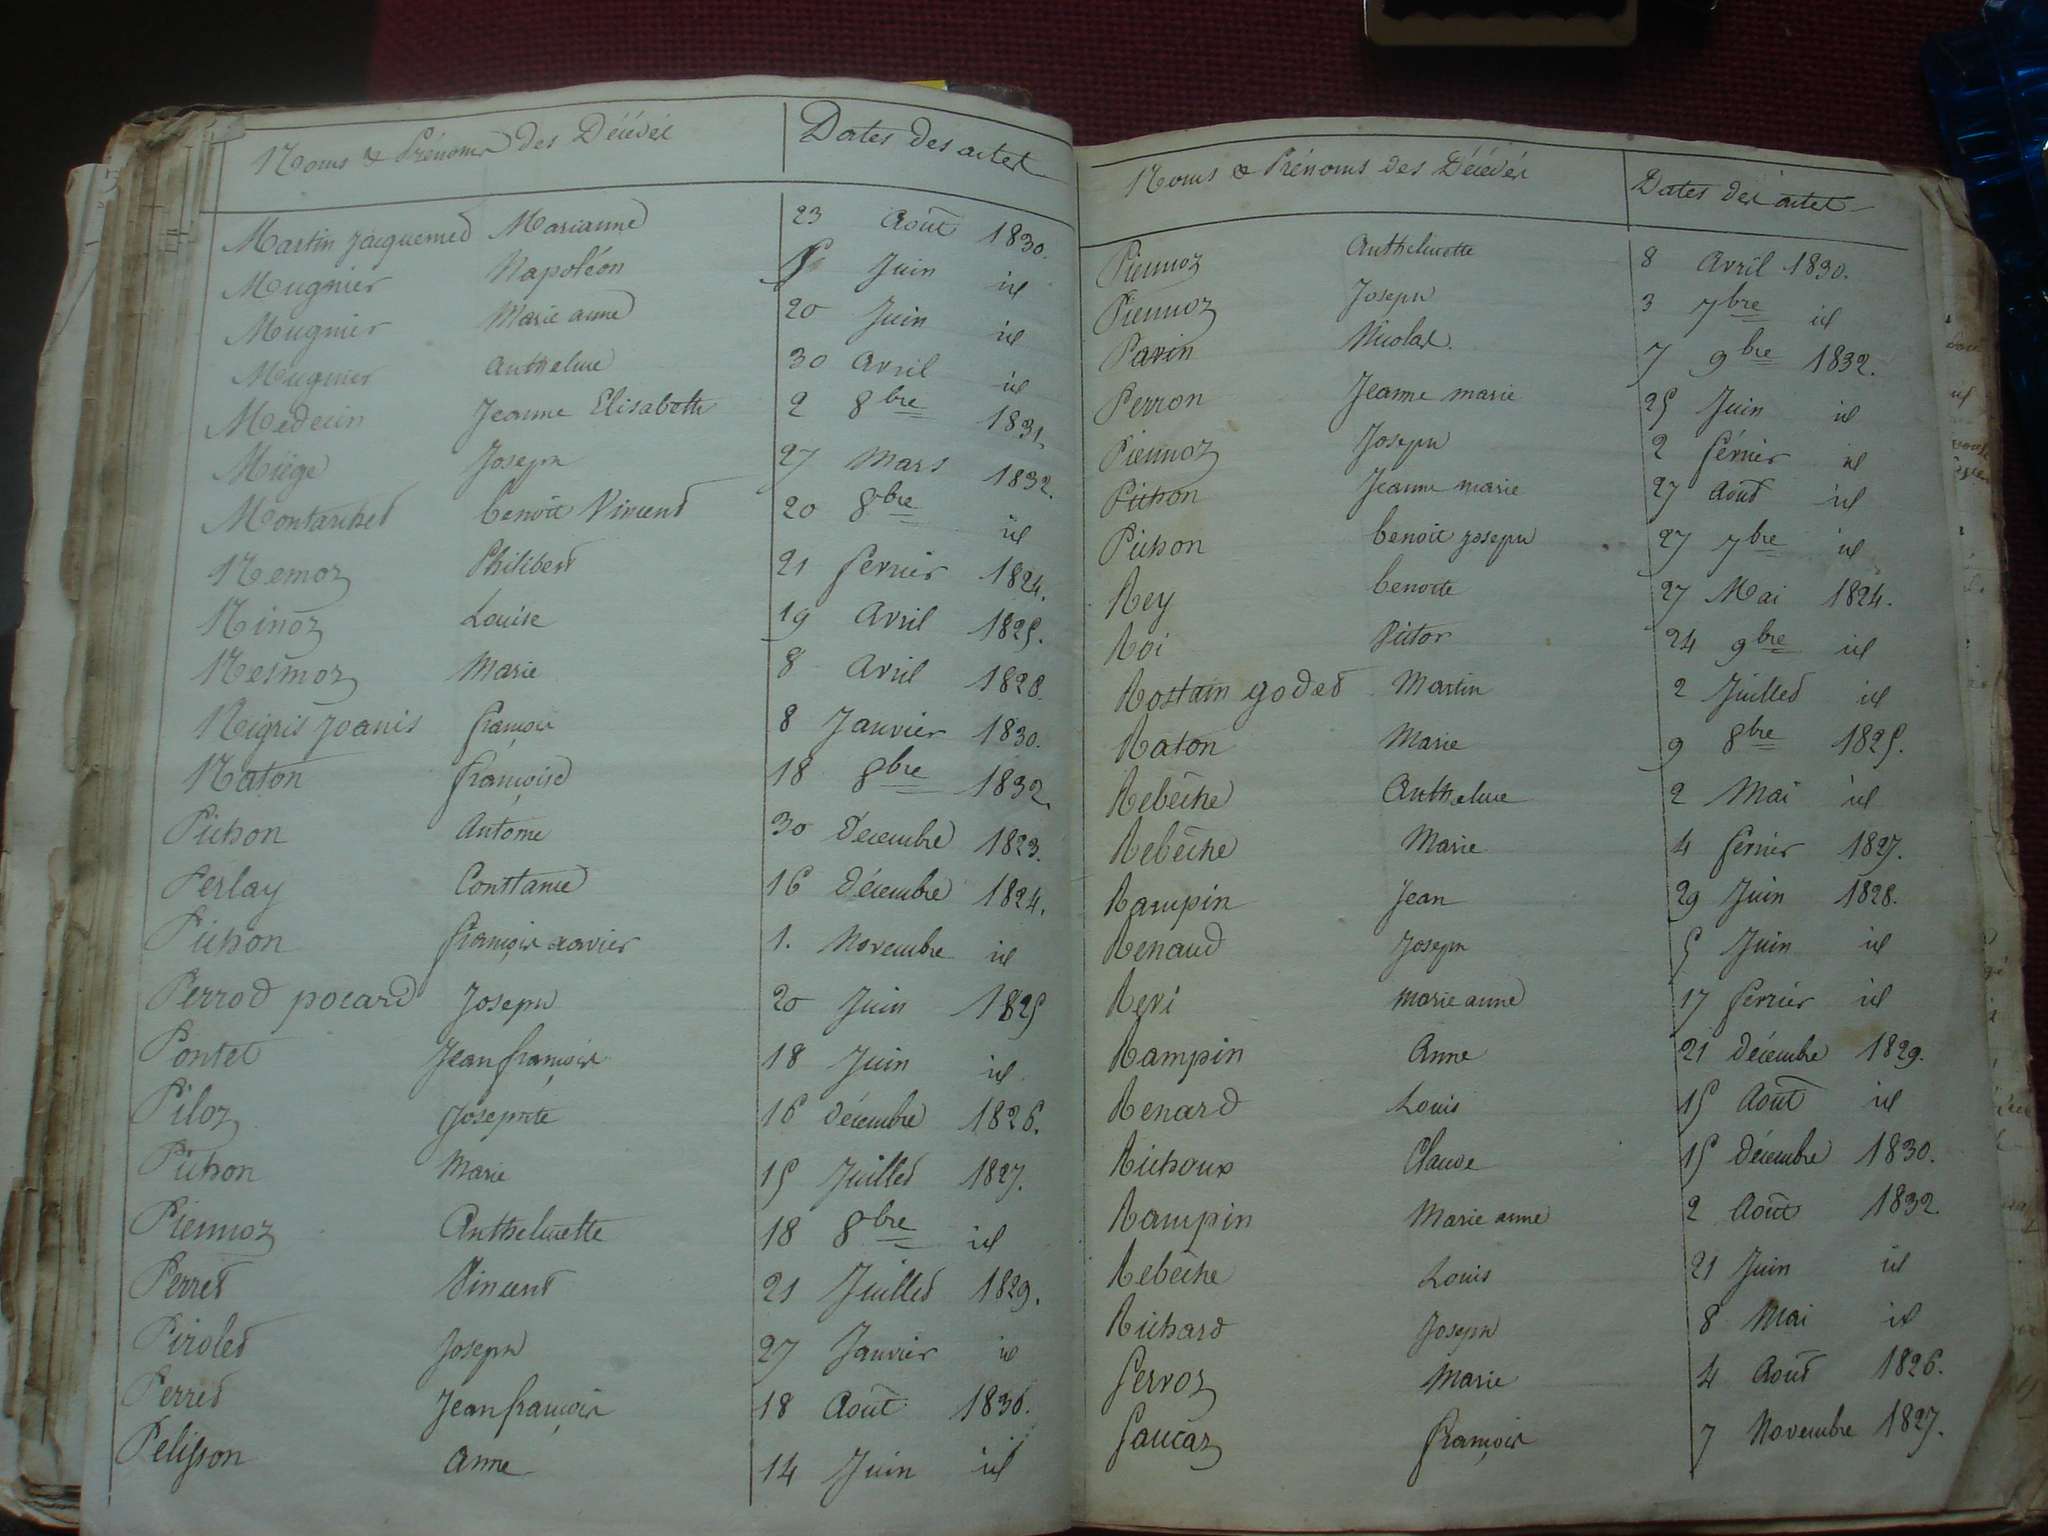 Noms & Prénoms des Décédés Dates des actes
Martin Jacquemed Marianne 23 Août 1830.
Mugnier Napoléon Juin id
Mugnier Marie anne 20 Juin id
Mugnier anthelme 30 avril id
Medecin Jeanne Elisabeth 2 8bre 1831.
Miège Joseph 27 Mars 1832.
Montanhed benoit Vincent 20 8bre id
Nemoz Philibert 21 fevrier 1824.
Ninoz Louise 19 avril 1825.
Nesmoz Marie 8 avril 1828.
Nigris Joanis françois 8 Janvier 1830.
Naton françoise 18 8bre 1832.
Pichon antoine 30 Décembre 1823.
Perlay Constance 16 Décembre 1824.
Pichon françois xavier 1. Novembre id
Perrod pocard Joseph 20 Juin 1825
Pontet Jean françois 18 Juin id
Piloz Josephte 16 décembre 1826.
Pichon Marie 15 Juillet 1827.
Piennoz Anthelmette 18 8bre id
Perret Vincent 21 Juillet 1829.
Pirolet Joseph 27 Janvier id
Perret Jean françois 18 Août 1830.
Pelisson anne 14 Juin id
Noms & Prénoms des Décédés Dates des actes
Piennoz Anthelmette 8 avril 1830.
Piennoz Joseph 3 7bre id
Pavin Nicolas. 7 9bre 1832.
Perron Jeanne marie 25 Juin id
Piennoz Joseph 2 février id
Pichon Jeanne marie 27 Août id
Pichon benoit joseph 27 7bre id
Rey benoite 27 Mai 1824.
Roi Victor 24 9bre id
Rostain godet Martin 2 Juillet id
Raton Marie 9 8bre 1825.
Rebèche Anthelme 2 Mai id
Rebèche Marie 4 fevrier 1827.
Rampin Jean 29 Juin 1828.
Renaud Joseph 5 Juin id
Revi marie anne 17 fevrier id
Rampin Anne 21 décembre 1829.
Renard Louis 15 Août id
Richoux Claude 15 Décembre 1830.
Rampin Marie anne 2 Août 1832
Rebèche Louis 21 Juin id
Richard Joseph 8 Mai id
Servoz Marie 4 Août 1826.
Saucaz françois 7 Novembre 1827.